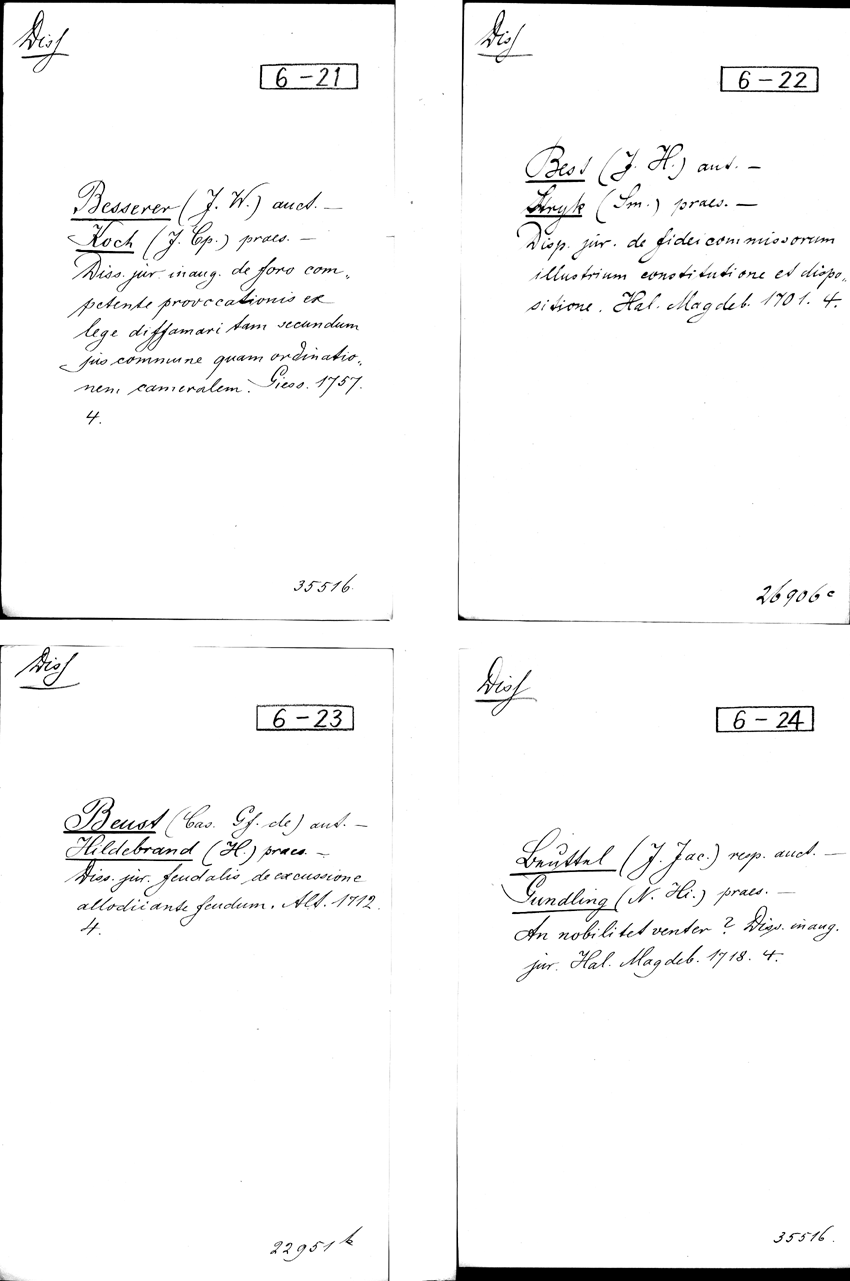 Diss
6-21
Besserer (J. W.) auct. —
Koch (J. Cp.) praes. —
Diss. jur. inaug. de foro com„
petente provocationis ex
lege diffamari tam secundum
jus commune quam ordinatio„
nem cameralem. Giess. 1757.
4.
35516.
Diss
6-22
Best (J. H.) aut. —
Stryk (Sm.) praes. —
Disp. jur. de fideicommissorum
illustrium constitutione et dispo„
sitione. Hal. Magdeb. 1701. 4.
26906c
Diss
6-23
Beust (Cas. Gf. de) aut. —
Hildebrand (H.) praes. —
Diss. jur. feudalis de excussione
allodii ante feudum. Alt. 1712.
4.
22951
Diss
6-24
Beuttel (J. Jac.) resp. auct. —
Gundling (N. Hi.) praes. —
An nobilitet venter? Diss. inaug.
jur. Hal. Magdeb. 1718. 4.
35516.